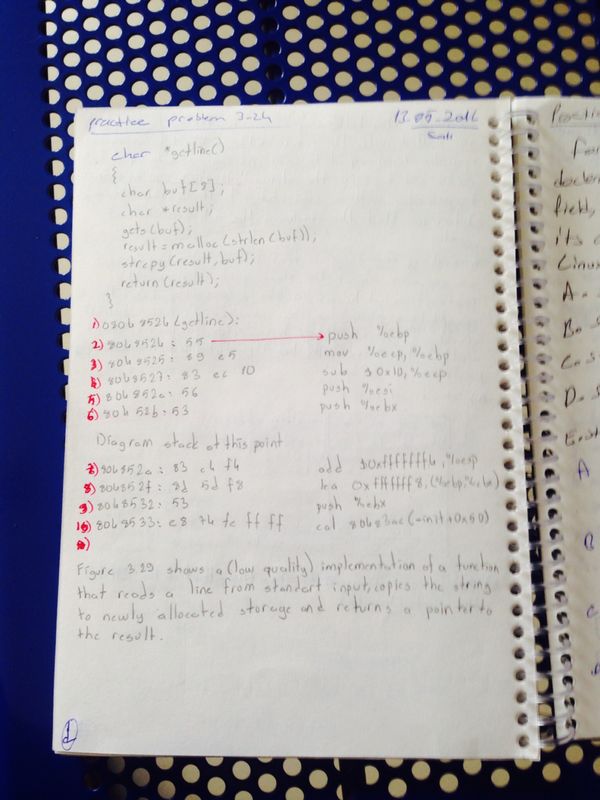 practice problem 3-24 13.09.2016
Salı
char *getline()
{
char buf[8];
char *result;
gets(buf);
result=malloc(strlen(buf));
strcpy(result,buf);
return(result);
}
1) 08048524(getline):
2) 8048524: 55 push %ebp
3) 8048525: 89 e5 mov %ecp,%ebp
4) 8048527: 83 ec 10 sub $0x10,%ecp
5) 804852a: 56 push %esi
6) 804 52b: 53 push %ebx
Diagram stack at this point
7) 804852a: 83 c4 f4 add $0xfffffff4,%esp
8) 804852f: 8d 5d f8 lea 0xfffffff8,(%ebp,%ebx)
9) 8048532: 53 push %ebx
10) 8048533: e8 74 fe ff ff cal 80483ac(-init+0x50)
Figure 3.29 shows a (low quality) implementation of a function
that reads a line from standart input,copies the string
to newly allocated storage and returns a pointer to
the result.
1
Practi
For
declar
field,
its a
Linux
A.
B.
C.
D.
A
B
C